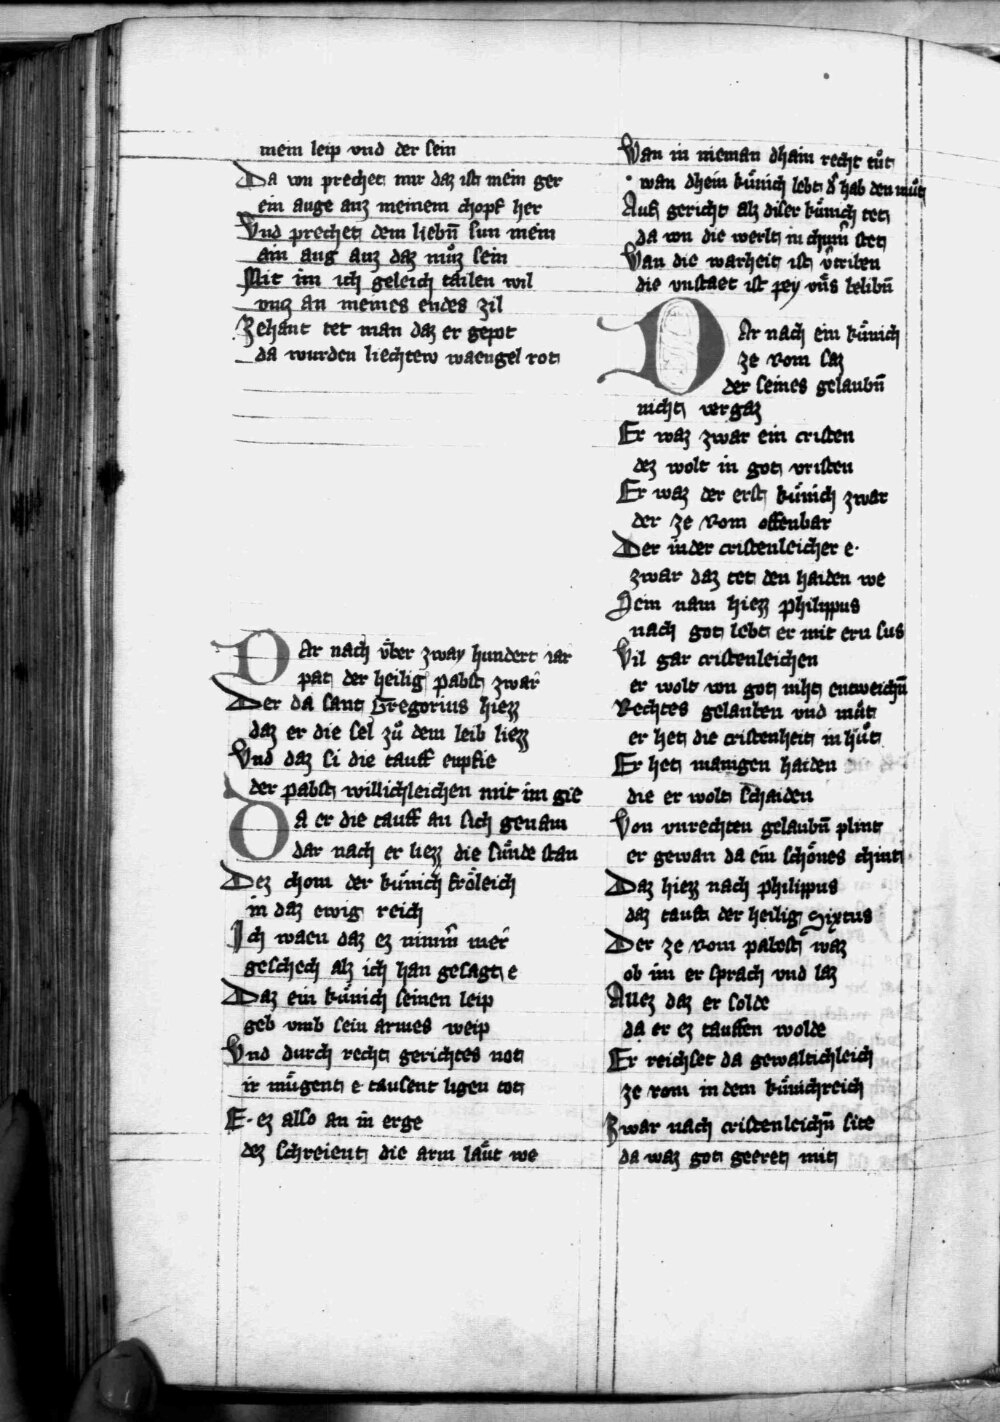 mein leip vnd der sein
Da von prechet mir daz ist mein ger
ein auge auz meinem chopf her
Vnd prechet dem liebn̄ sun mein
ain aug auz daz muͦz sein
Mit im ich geleich tailen wil
vncz an meines endes zil
Zehant tet man daz er gepot
da wurden liechtew waengel rot
DAr nach vͤber zway hundert iar
pat der heilig pabst zwar
Der da sant Gregorius hiezz
daz er die sel zuͦ dem leib liezz
Vnd daz si die tauff enpfie
der pabst willichleichen mit im gie
Da er die tauff an sich genam
dar nach er liezz die suͤnde stan
Dez chom der kuͤnich froͤleich
in daz ewig reich
Ich waen daz ez nimm̄ mer
geschech alz ich han gesagt e
Daz ein kuͤnich seinen leip
geb vmb sein armes weip
Vnd durch recht gerichtes not
ir muͤgent e tausent ligen tot
E· ez also an in erge
dez schreient die arm laͤut we
Wan in nieman dhain recht tuͦt
wan dhein kuͤnich lebt d̓ hab den muͦt
Auf gericht alz diser kuͤnich tet
da von die werlt in chum̄ stet
Wan die warheit ist v̓triben
die vnstaet ist pey vns belibn̄
DAr nach ein kuͤnich
ze rom saz
der seines gelaubn̄
nicht vergaz
Er waz zwar ein cristen
dez wolt in got vristen
Er waz der erst kuͤnich zwar
der ze rom offenbar
Der in der cristenleicher e·
zwar daz tet den haiden we
Sein nam hiezz philippus
nach got lebt er mit ern sus
Vil gar cristenleichen
er wolt von got niht entweichn̄
Rechtes gelauben vnd maͤt
er het die cristenheit in huͦt
Er het manigen haiden
die er wolt schaiden
Von vnrechten gelaubn̄ plint
er gewan da ein schoͤnes chint
Daz hiezz nach philippus
daz tauft der heilig Sixtus
Der ze rom pabest waz
ob im er sprach vnd laz
Allez daz er solde
da er ez tauffen wolde
Er reichset da gewaltichleich
ze rom in dem kuͤnichreich
Zwar nach cristenleichn̄ site
da waz got geeret mit